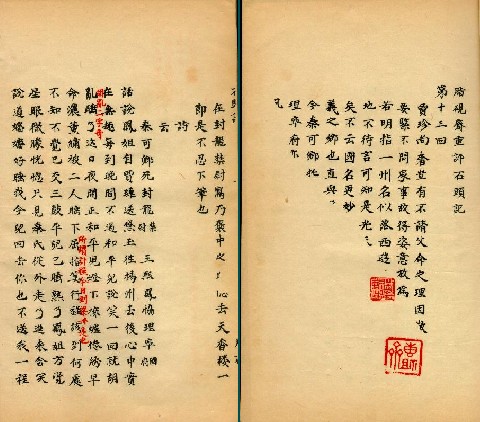 脂硯齋重評石頭記
第十三回
賈珍尚奢豈有不請父命之理因敬
要緊不問家事故得姿意放為
若明指一州名似落西遊
地不待言可知是光
矣不云國名更妙
義之鄉也直與
今秦可卿托
理寧府亦
凡
在封龍禁尉寫乃褒中之 去天香樓一
即是不忍下筆也
詩
云
秦可卿死封龍禁尉 王熙鳳協理寧國府
話說鳳姐自賈璉送黛玉往揚州去後心中實
在無趣每到晚間不過和平兒說笑一回就胡
胡亂二字奇
亂睡了這日夜間正和平兒燈下擁爐倦綉早
命濃薰綉被二人睡下屈指算行程該到何處
所謂計程今日到梁州是也
不知不覺已交三鼓平兒已睡熟了鳳姐方覺
星眼微朦恍惚只見秦氏從外走了進來含笑
說道嬸嬸好睡我今兒回去你也不送我一程